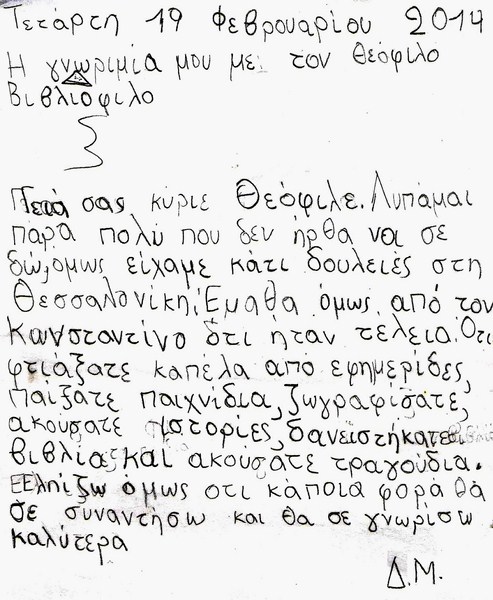 Τετάρτη 19 Φεβρουαρίου 2014
Η γνωριμία μου με τον Θεόφιλο
Βιβλιόφιλο
Γεια σας κύριε Θεόφιλε. Λυπάμαι
πάρα πολύ που δεν ήρθα να σε
δώ, όμως είχαμε κάτι δουλειές στη
Θεσσαλονίκη. Έμαθα όμως από τον
Κωνσταντίνο ότι ήταν τέλεια. Ότι
φτιάξατε καπέλα από εφημερίδες,
παίξατε παιχνίδια, ζωγραφίσατε,
ακούσατε ιστορίες, δανειστήκατε
βιβλία και ακούσατε τραγούδια.
Ελπίζω όμως οτι κάποια φορά θα
σε συναντήσω και θα σε γνωρίσω
καλύτερα
Δ.Μ.